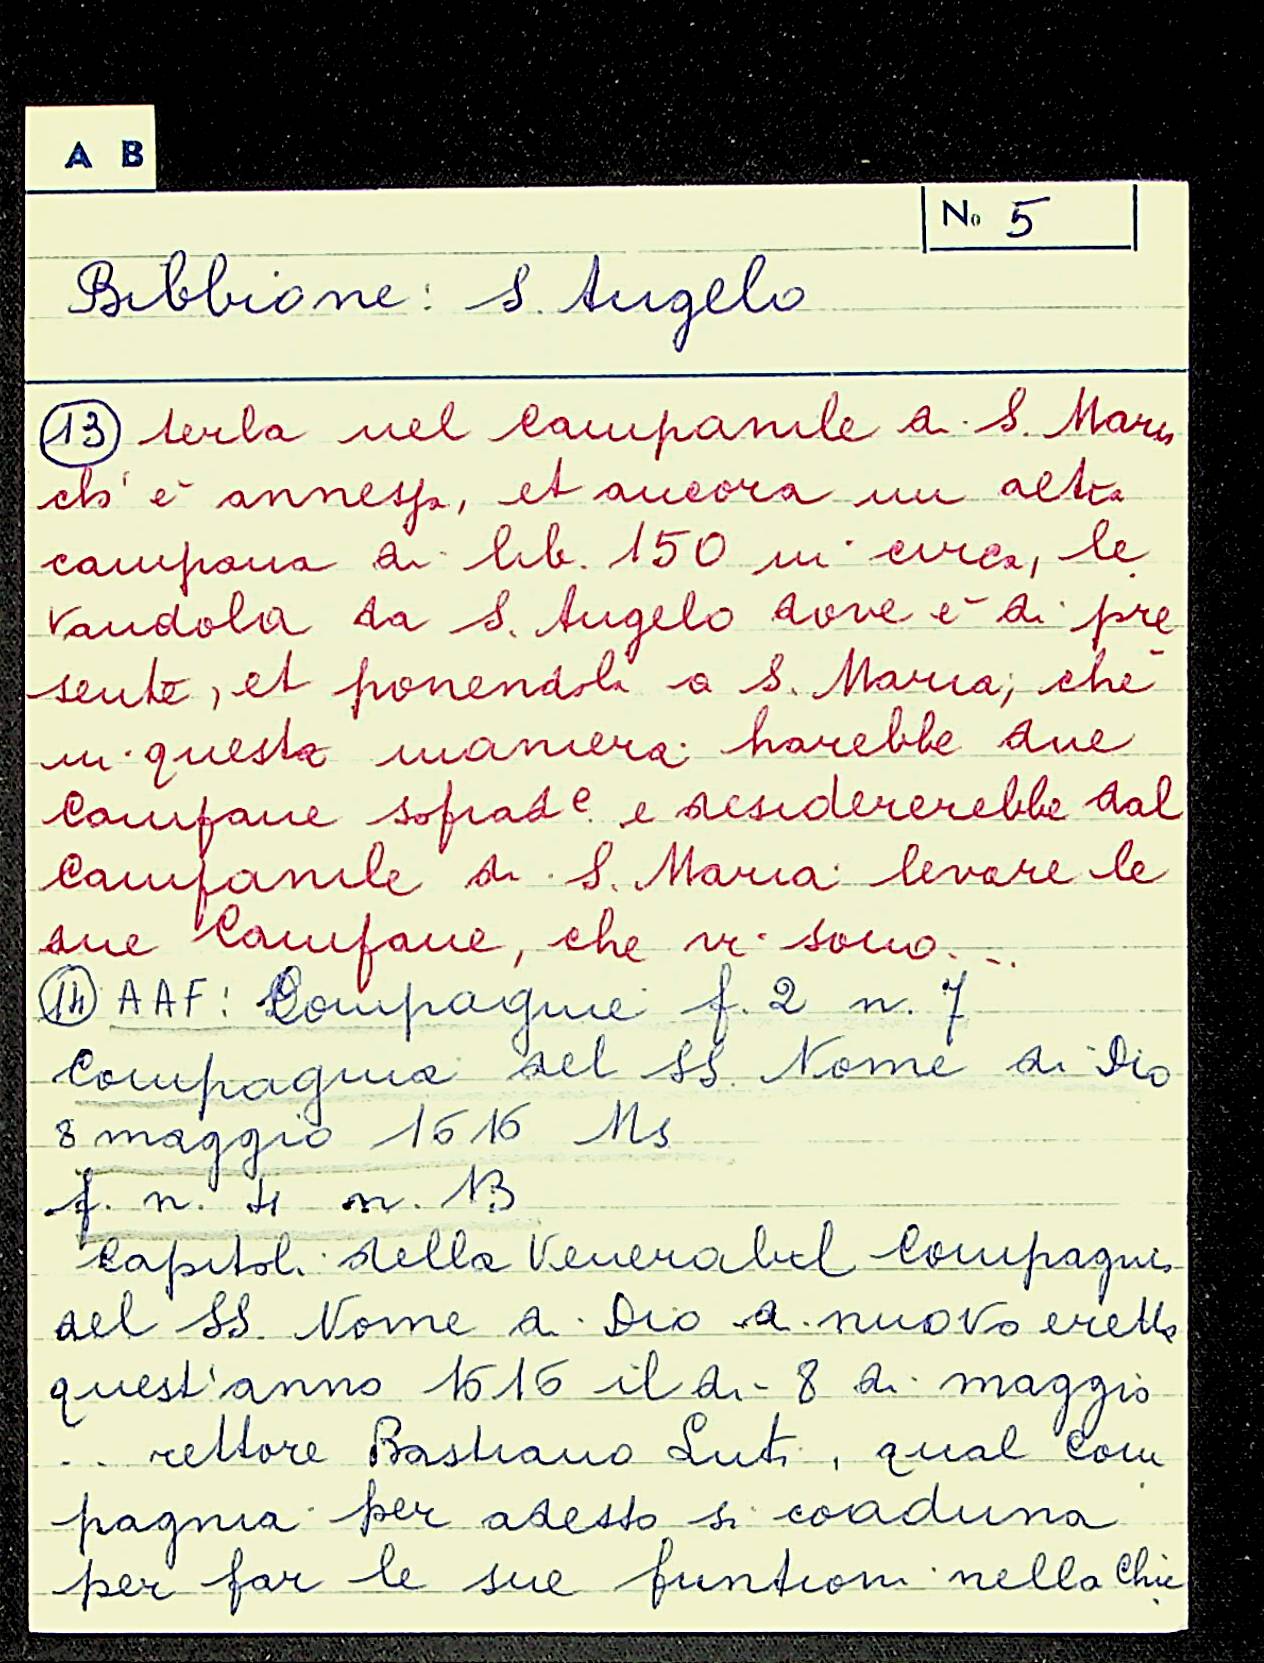 A B
No 5
Bibbione: S. Angelo
13 terla nel Campanile di S. Maria
ch' è annessa, et ancora un altra
campana di lib. 150 in circa, le
vandola da S. Angelo dove è di pre
sente, et ponendola a S. Maria; che
in questa maniera harebbe due
Campane soprad.e e desidererebbe dal
Campanile di S. Maria levare le
due Campane, che vi sono...
14 AAF: Compagnie f. 2 n. 7
Compagnia del SS. Nome di Dio
8 maggio 1616 Ms
f. n. 4 n. 13
Capitoli della Venerabil Compagnia
del SS. Nome di Dio di nuovo eretta
quest'anno 1616 il di 8 di maggio
... rettore Bastiano Luti, qual Com
pagnia per adesso si coaduna
per far le sue funtioni nella Chie